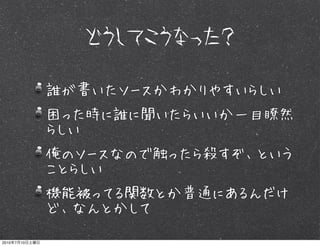 どうしてこうなった？
誰が書いたソースかわかりやすいらしい
困った時に誰に聞いたらいいか一目瞭然
らしい
俺のソースなので触ったら殺すぞ、という
ことらしい
機能被ってる関数とか普通にあるんだけ
ど、なんとかして
2010年7月10日土曜日